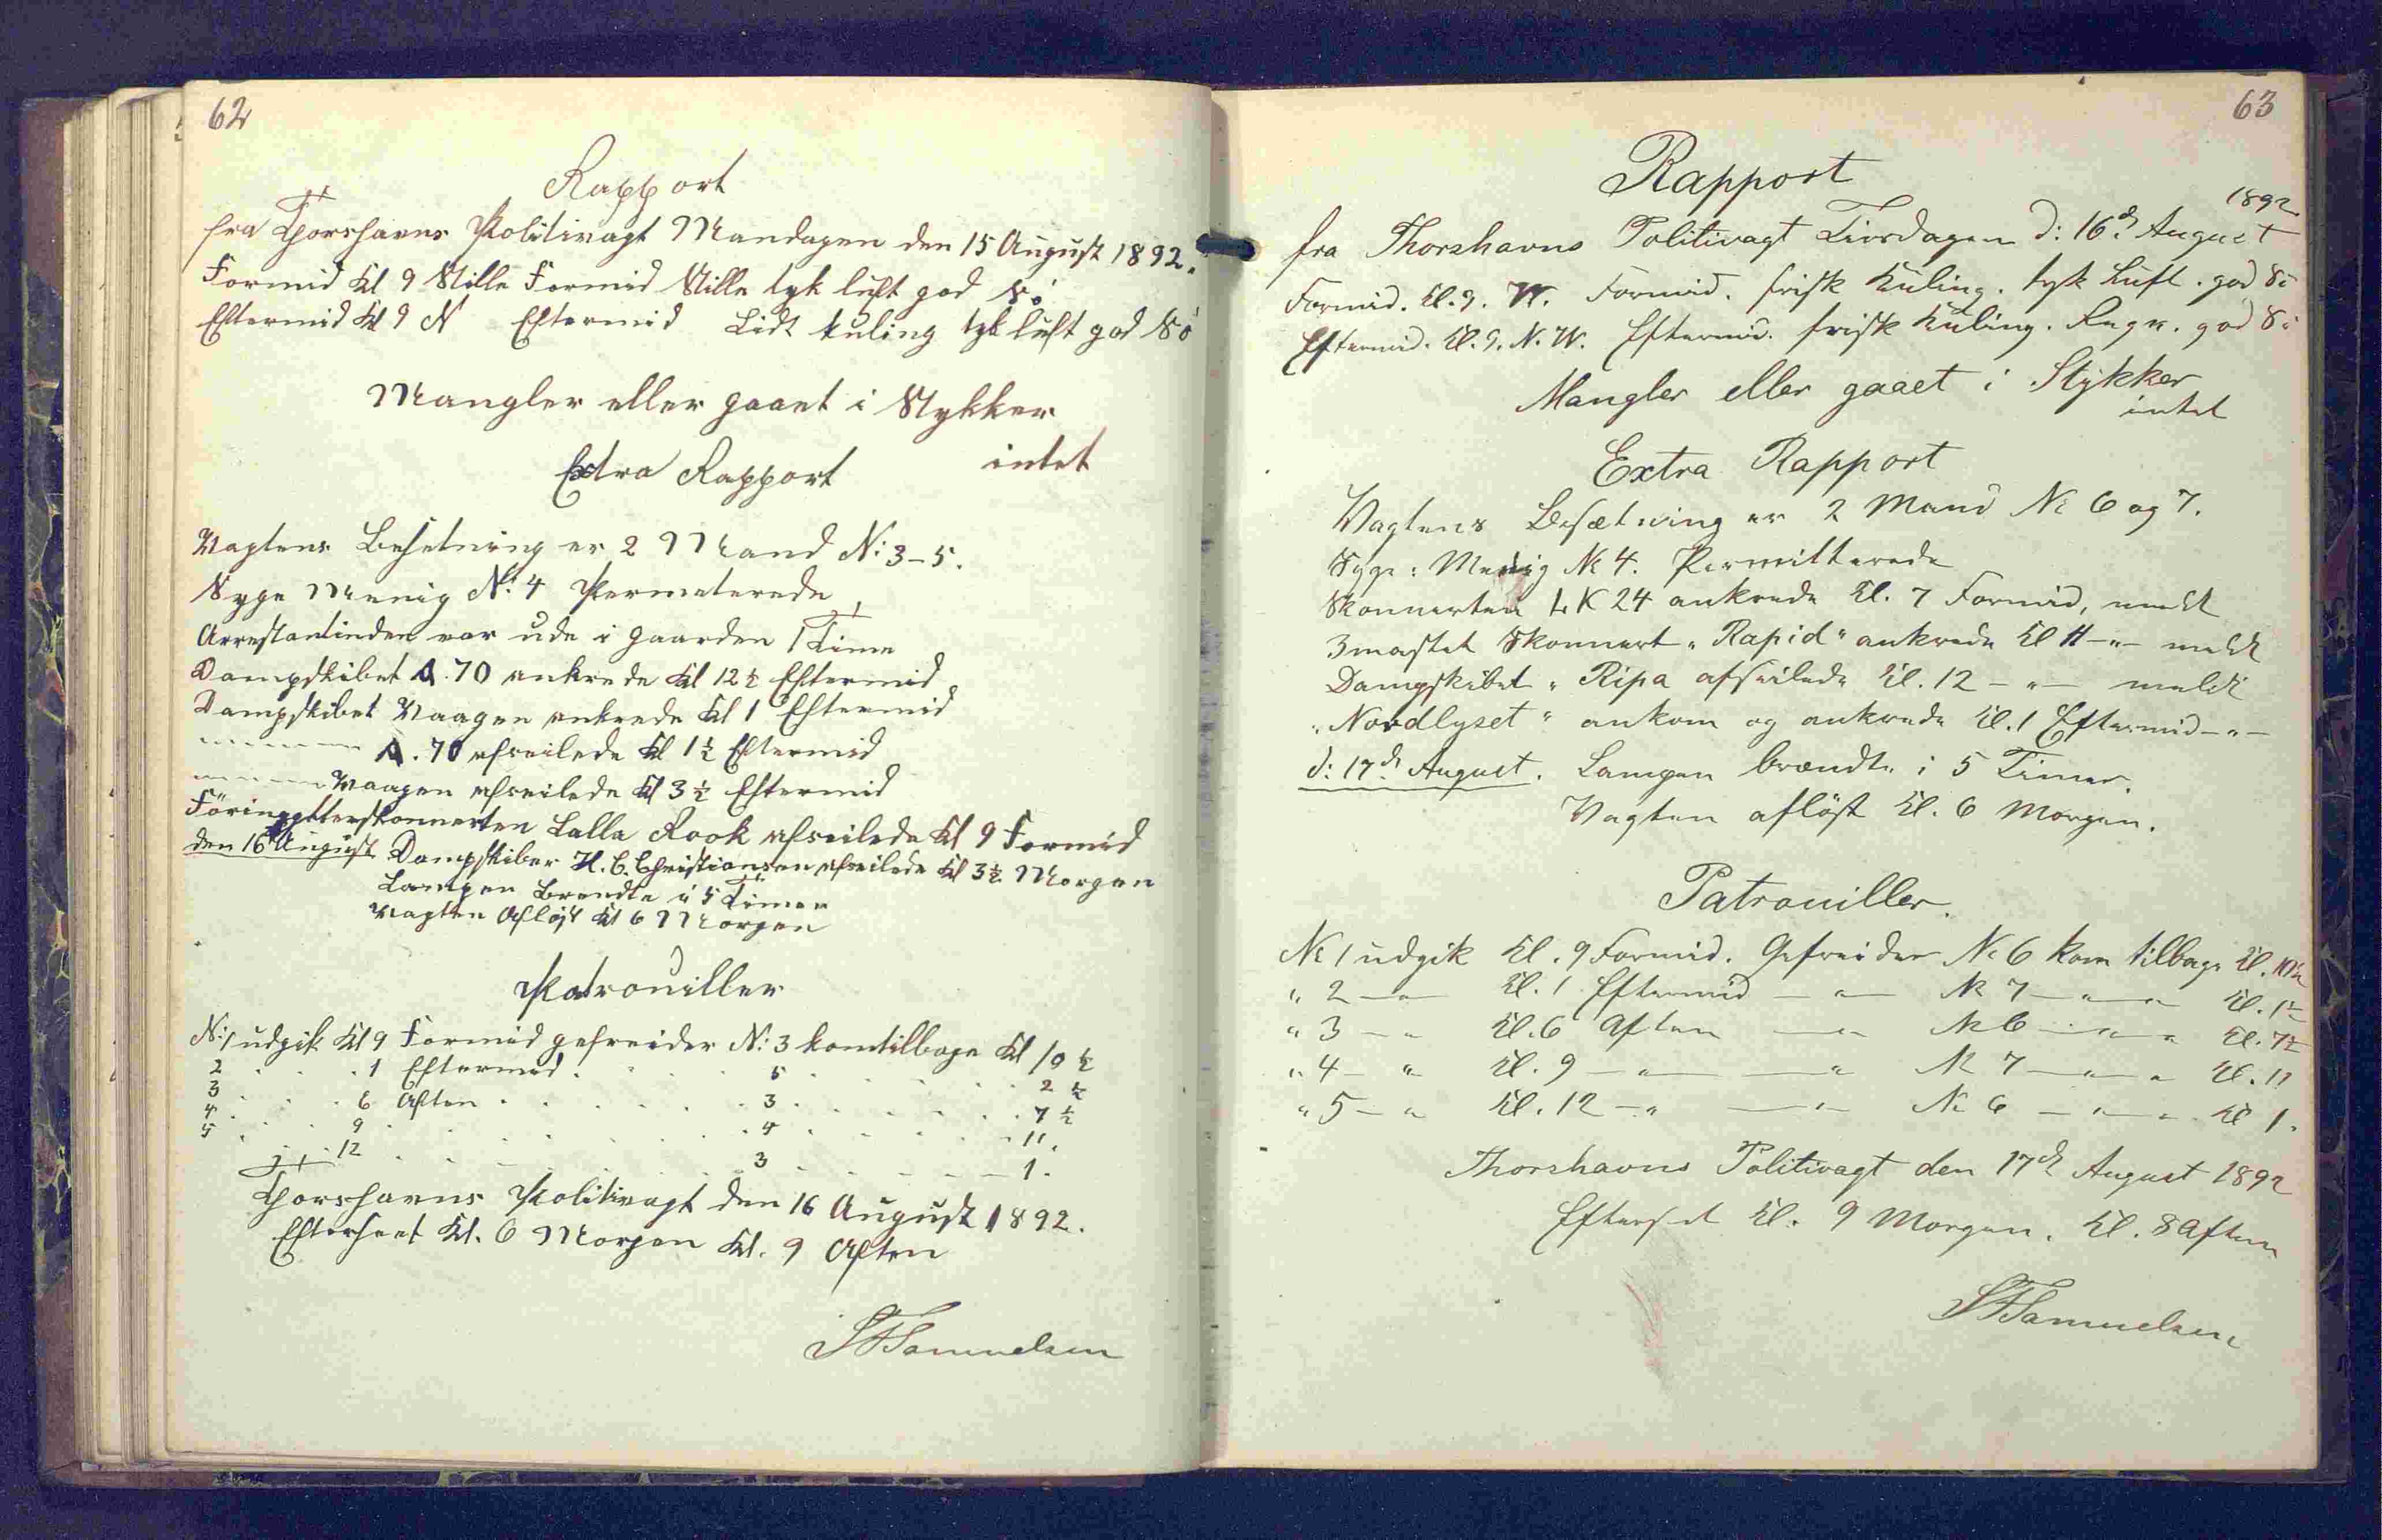 62
Rapport
fra Thorshavns Politivagt Mandagen den 15 August 1892.
Formid Kl 9 Stille Formid Stille tyk luft god Sö
Eftermid Kl 9 N Eftermid Lidt kuling tyk luft god Sö
Mangler eller gaaet i Stykker
intet
Extra Rapport
Vagtens Besetning er 2 Mand N: 3-5.
Syge Menig N: 4 Permeterede
Arrestantinden var ude i Gaarden 1 Time
Dampskibet A. 70 ankrede Kl 12½ Eftermid
Dampskibet Vaagen ankrede Kl 1 Eftermid
A. 70 afseilede Kl 1½ Eftermid
Vaagen afseilede Kl 3½ Eftermid
Lalla Rook afseilede Kl 9 Formid
den 16 August Dampskiber H. C. Christiansen afseilede Kl 3½ Morgen
Lampen Brendte i 5 Timer
Vagten Afløst Kl 6 Morgen
Patrouiller
N: 1 udgik Kl 9 Formid gefreider N: 3 kom tilbage Kl 10½
2 . . . 1 Eftermid . . . 5 . . . 2½
3 . . . 6 Aften . . . 3 . . . 7½
4 . . . 9 . . . 4 . . . 11.
5 . . . 12 . . . 3 . . . 1.
Thorshavns Politivagt den 16 August 1892.
Efterseet Kl. 6 Morgen Kl. 9 Aften
Samuelsen
63
Rapport
1892.
fra Thorshavns Politivagt Tirsdagen d: 16d August
Formid. Kl. 9. W. Formid. frisk Kuling. tyk Luft. god Sö
Eftermid. Kl. 9. N. W. Eftermid. frisk Kuling. Regn. god Sö
Mangler eller gaaet i Stykker
intet
Extra Rapport
Vagtens Besætning er 2 Mand No 6 og 7.
Syge: Menig No 4. Permitterede
Skonnerten LK 24 ankrede Kl. 7 Formid, meldt
3mastet Skonnert "Rapid" ankrede Kl 11 -"- meldt
Dampskibet "Ripa afseilede Kl. 12 -"- meldt
"Nordlyset" ankom og ankrede Kl. 1 Eftermid -"-
d: 17d August. Lampen brændte i 5 Timer.
Vagten afløst Kl. 6 Morgen.
Patrouiller.
No 1 udgik Kl. 9 Formid. Gefreider No 6 kom tilbage Kl. 10½
" 2 -"- Kl. 1 Eftermid -"- No 7 -"- " Kl.
" 3 -"- Kl. 6 Aften -"- No 6 -"- " Kl. 7½
" 4 -"- Kl. 9 -"- -"- No 7 -"- " Kl. 11
" 5 -"- Kl. 12 -"- -"- No 6 -"- " Kl 1.
Thorshavns Politivagt den 17d August 1892
Efterset Kl. 9 Morgen. Kl. 8 Aften
Samuelsen